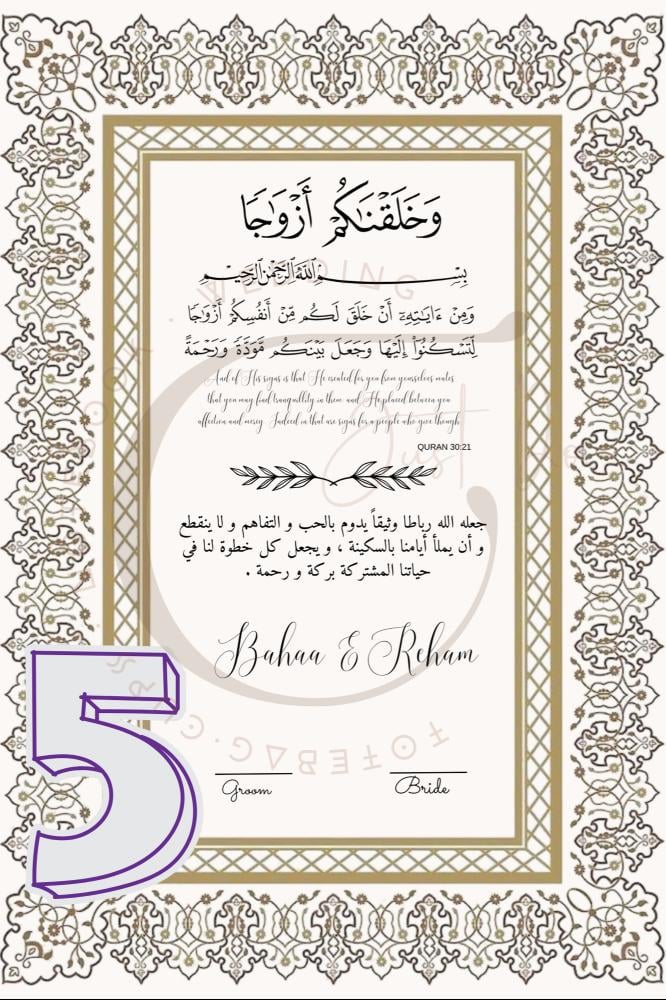 وَخَلَقْنَاكُمْ أَزْوَاجًا
بِسْمِ اللَّهِ الرَّحْمَٰنِ الرَّحِيمِ
وَمِنْ ءَايَـٰتِهِۦٓ أَنْ خَلَقَ لَكُم مِّنْ أَنفُسِكُمْ أَزْوَٰجًا
لِّتَسْكُنُوٓا۟ إِلَيْهَا وَجَعَلَ بَيْنَكُم مَّوَدَّةً وَرَحْمَةً
And of His signs is that He created for you from yourselves mates
that you may find tranquillity in them and He placed between you
affection and mercy. Indeed in that are signs for a people who give though
QURAN 30:21
جعله الله رباطا وثيقاً يدوم بالحب و التفاهم و لا ينقطع
و أن يملأ أيامنا بالسكينة ، و يجعل كل خطوة لنا في
حياتنا المشتركة بركة و رحمة .
Bahaa & Reham
Groom
Bride
5
WEDDING
Just
TOTEBAG